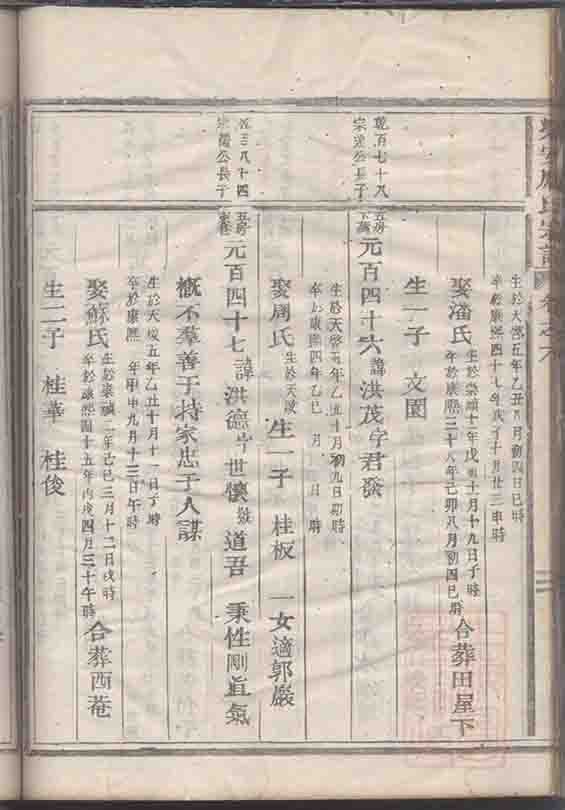 氏宗譜
生於天啓五年乙丑八月初四日巳時
卒於康熙四十七年戊子十月廿三申時
娶潘氏
生於崇禎十一年戊寅十月十九日子時
卒於康熙三十八年己卯八月初四巳時
合葬田屋下
生一子 文園
百七十八
宗達公長子
五房
元百四十六諱洪茂字君發
生於天啓五年乙丑十月初九日卯時
卒於康熙四年乙巳 月 日 時
娶周氏
生於天啟
生一子 桂板 一女適郭巖
百三八十四
公長子
五房
元百四十七諱洪德字世懷號道吾 秉性剛直氣
概不羣善于持家忠于人謀
生於天啟五年乙丑十月十一日子時
卒於康熙 年甲申九月十三日午時
娶蘇氏
生於崇禎二年己巳三月十二日戌時
卒於康熙四十五年丙戌四月三十午時
合葬西菴
生二子 桂華 桂俊